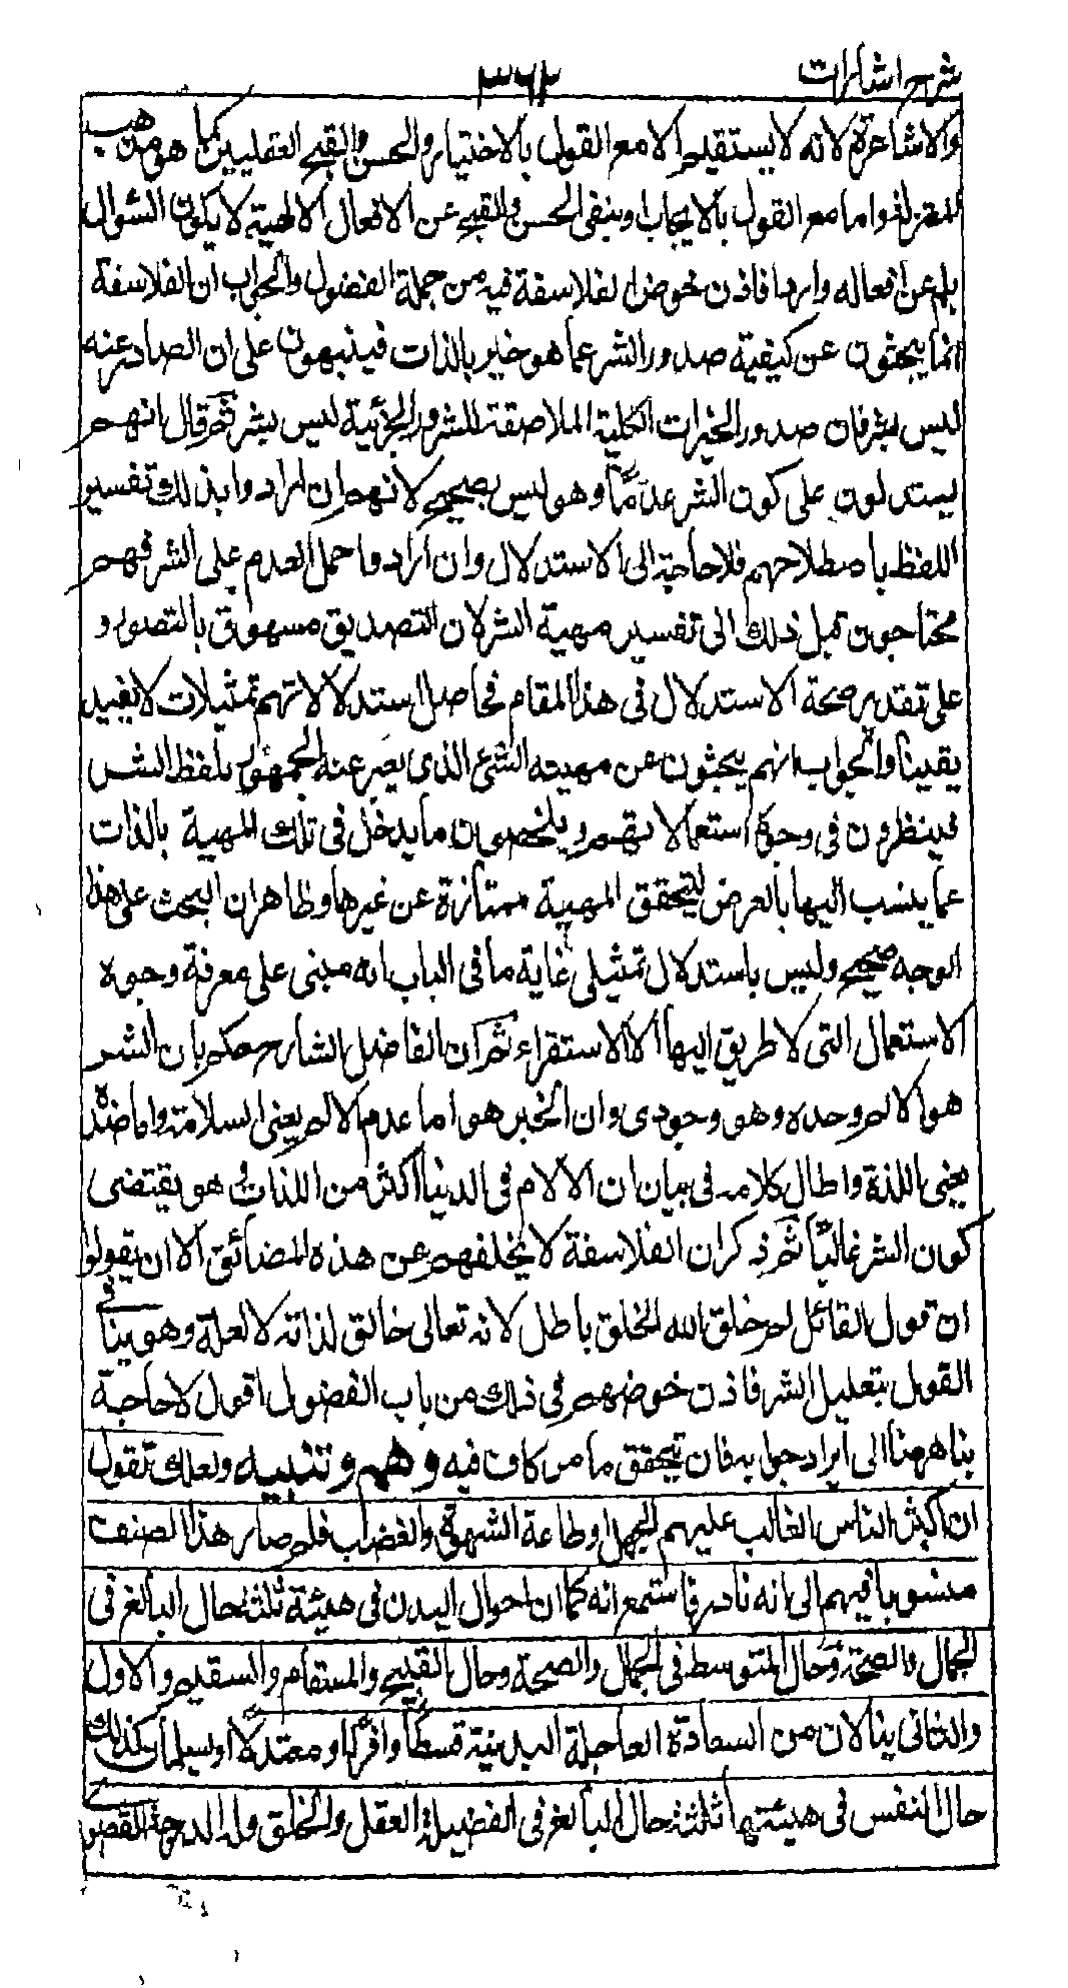 شرح اشارات
٣٦٢
والاشاعرة لانه لا يستقيم الا مع القول بالاختيار والحسن والقبح العقليين كما هو مذهب
المعتزلة واما مع القول بالايجاب وبنفى الحسن والقبح عن الافعال الالهية لا يكون السؤال
بلم عن افعاله واردا فاذن خوض الفلاسفة فيه من جملة الفضول والجواب ان الفلاسفة
انما يبحثون عن كيفية صدور الشر عما هو خير بالذات فينبهون على ان الصادر عنه
ليس بشر فان صدور الخيرات الكلية الملاصقة للشرور الجزئية ليس بشر ثم قال انهم
يستدلون على كون الشر عدمًا وهو ليس بصحيح لانهم ان ارادوا بذلك تفسير
اللفظ باصطلاحهم فلا حاجة الى الاستدلال وان ارادوا حمل العدم على الشر فهم
محتاجون قبل ذلك الى تفسير مهية الشر لان التصديق مسبوق بالتصور و
على تقدير صحة الاستدلال فى هذا المقام فحاصل استدلالاتهم تمثيلات لا يفيد
يقينا والجواب انهم يبحثون عن مهية الشئ الذى يعبر عنه الجمهور بلفظ الشر
فينظرون فى وجوه استعمالاتهم ويلخصون ما يدخل فى تلك المهية بالذات
عما ينسب اليها بالعرض ليتحقق المهية ممتازة عن غيرها وظاهر ان البحث على هذا
الوجه صحيح وليس باستدلال تمثيلى غاية ما فى الباب انه مبنى على معرفة وجوه
الاستعمال التى لا طريق اليها الا الاستقراء ثم ان الفاضل الشارح حكم بان الشر
هو الالم وحده وهو وجودى وان الخير هو اما عدم الالم يعنى السلامة واما ضده
يعنى اللذة واطال كلامه فى بيان ان الالام فى الدنيا اكثر من اللذات وهو يقتضى
كون الشر غالبًا ثم ذكر ان الفلاسفة لا يخلفهم عن هذه المضائق الا ان يقولوا
ان قول القائل لم خلق الله الخلق باطل لانه تعالى خالق لذاته لا لعلة وهو ينافى
القول بتعليل الشر فاذن خوضهم فى ذلك من باب الفضول اقول لا حاجة
بنا ههنا الى ايراد جوابه فان تحقق ما مر كاف فيه وهم وتنبيه ولعلك تقول
ان اكثر الناس الغالب عليهم الجهل او طاعة الشهوة والغضب فلم صار هذا الصنف
منسوبا فيهم الى انه نادر فاستمع انه كما ان احوال البدن فى هيئة ثلثة حال البالغ فى
الجمال والصحة وحال المتوسط فى الجمال والصحة وحال القبيح والمسقام والسقيم والاول
والثانى ينالان من السعادة العاجلة البدنية قسطًا وافرًا او معتدلًا او يسلمان كذلك
حال النفس فى هيئتها ثلثة حال البالغ فى الفضيلة العقل والخلق وله الدرجة القصوى